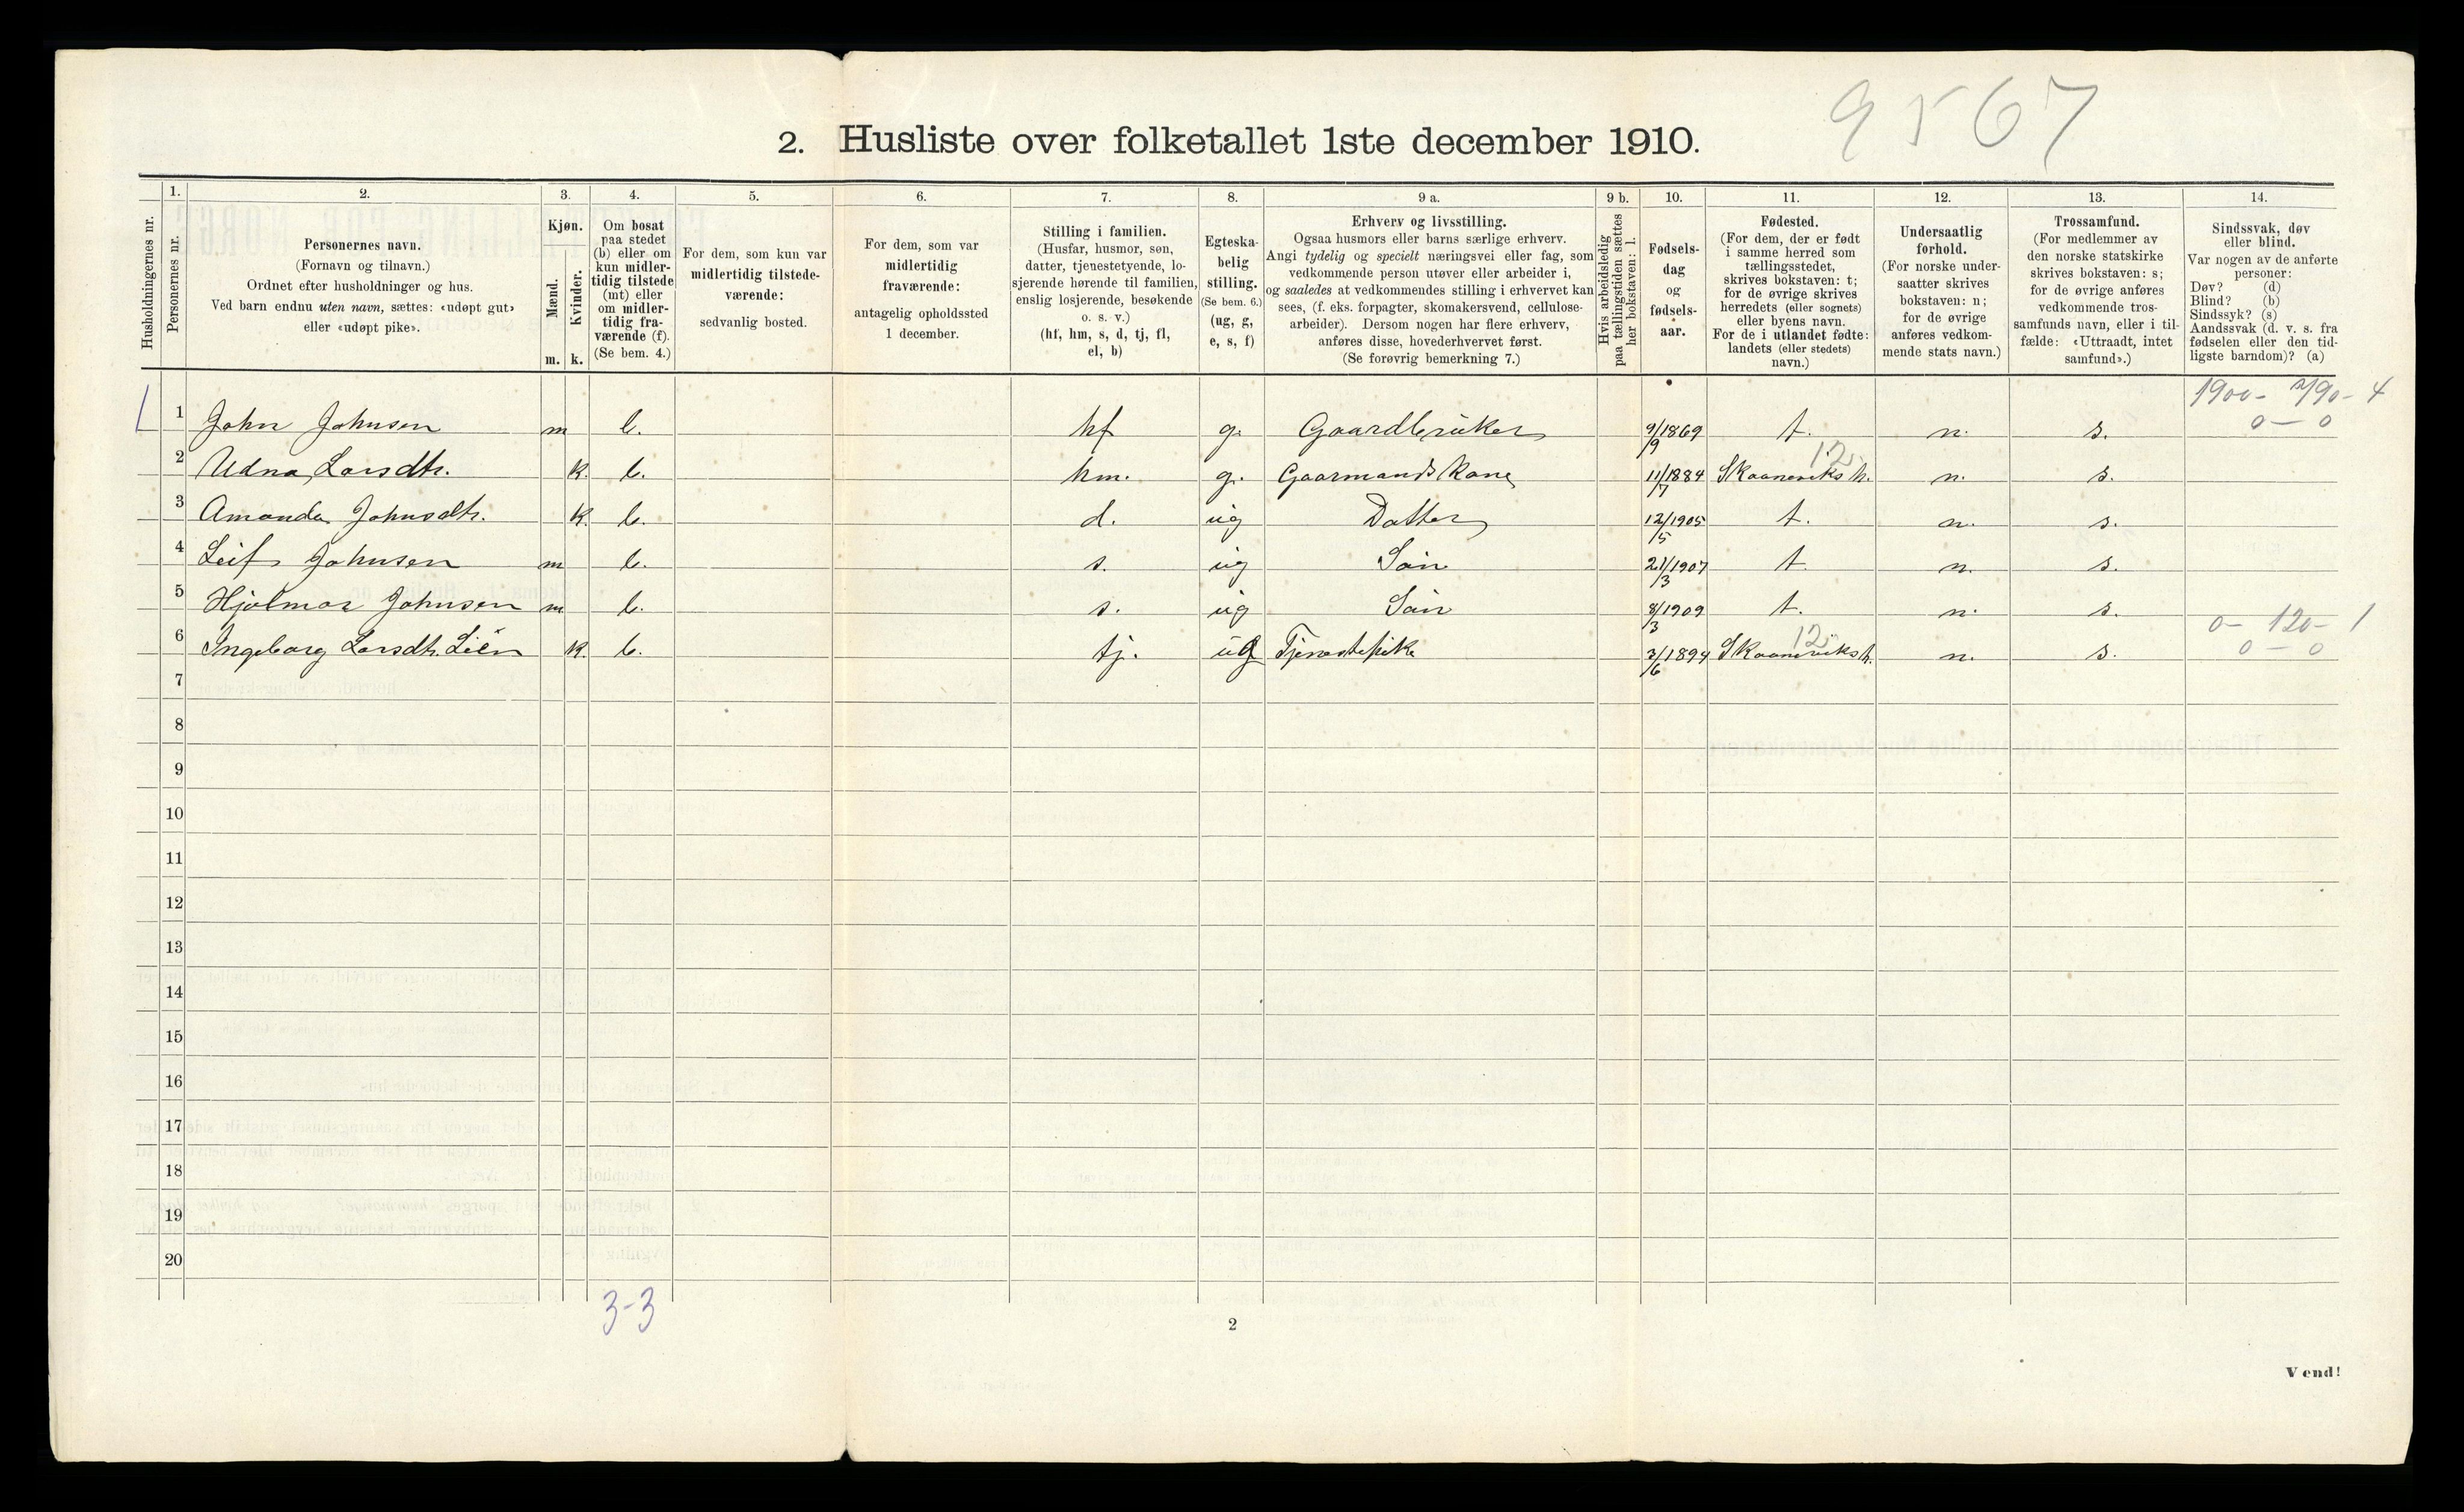 9567
2. Husliste over folketallet 1ste december 1910.
Husholdningernes nr.
1.
Personernes nr.
2.
Personernes navn.
(Fornavn og tilnavn.)
Ordnet efter husholdninger og hus.
Ved barn endnu uten navn, sættes: «udøpt gut»
eller «udøpt pike».
3.
Kjøn.
Mænd.
Kvinder.
m. k.
4.
Om bosat
paa stedet
(b) eller om
kun midler-
tidig tilstede
(mt) eller
om midler-
tidig fra-
værende (f).
(Se bem. 4.)
5.
For dem, som kun var
midlertidig tilstede-
værende:
sedvanlig bosted.
6.
For dem, som var
midlertidig
fraværende:
antagelig opholdssted
1 december.
7.
Stilling i familien.
(Husfar, husmor, søn,
datter, tjenestetyende, lo-
sjerende hørende til familien,
enslig losjerende, besøkende
o. s. v.)
(hf, hm, s, d, tj, fl,
el, b)
8.
Egteska-
belig
stilling.
(Se bem. 6.)
(ug, g,
e, s, f)
9 a.
Erhverv og livsstilling.
Ogsaa husmors eller barns særlige erhverv.
Angi tydelig og specielt næringsvei eller fag, som
vedkommende person utøver eller arbeider i,
og saaledes at vedkommendes stilling i erhvervet kan
sees, (f. eks. forpagter, skomakersvend, cellulose-
arbeider). Dersom nogen har flere erhverv,
anføres disse, hovederhvervet først.
(Se forøvrig bemerkning 7.)
9 b.
Hvis arbeidsledig
paa tællingstiden sættes
her bokstaven: l.
10.
Fødsels-
dag
og
fødsels-
aar.
11.
Fødested.
(For dem, der er født
i samme herred som
tællingsstedet,
skrives bokstaven: t;
for de øvrige skrives
herredets (eller sognets)
eller byens navn.
For de i utlandet fødte:
landets (eller stedets)
navn.)
12.
Undersaatlig
forhold.
(For norske under-
saatter skrives
bokstaven: n;
for de øvrige
anføres vedkom-
mende stats navn.)
13.
Trossamfund.
(For medlemmer av
den norske statskirke
skrives bokstaven: s;
for de øvrige anføres
vedkommende tros-
samfunds navn, eller i til-
fælde: «Uttraadt, intet
samfund».)
14.
Sindssvak, døv
eller blind.
Var nogen av de anførte
personer:
Døv? (d)
Blind? (b)
Sindssyk? (s)
Aandssvak (d. v. s. fra
fødselen eller den tid-
ligste barndom)? (a)
1 John Johnsen m b. hf g. Gaardbruker 9/9 1869 t. n. s. 0 — 0
2 Udna Larsdtr. k. b. hm. g. Gaarmands Kone 11/7 1884 Skaaneviks h. 12 n. s.
3 Amanda Johnsdtr. k. b. d. ug Datter 12/5 1905 t. n. s.
4 Leif Johnsen m b. s. ug Sön 21/3 1907 t. n. s.
5 Hjalmar Johnsen m b. s. ug Sön 8/3 1909 t. n. s. 0- 120- 1
6 Ingeborg Larsdtr. Lien k. b. tj. ug Tjenestepike 3/6 1894 Skaaneviks h. 12 n. s. 0 — 0
7
8
9
10
11
12
13
14
15
16
17
18
19
20
3-3
2
Vend!